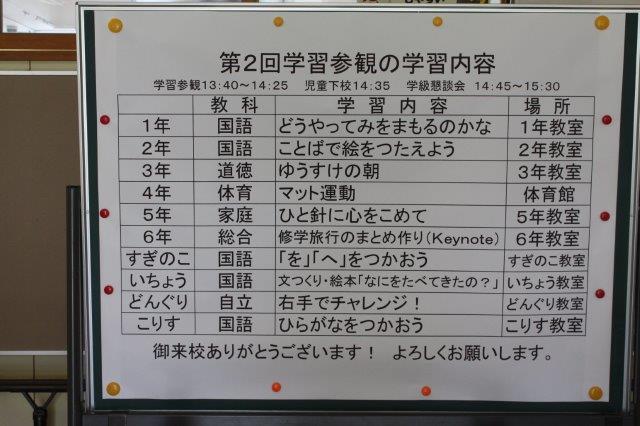 第2回学習参観の学習内容
学習参観13:40～14:25　児童下校14:35　学級懇談会 14:45～15:30
教科　学習内容　場所
1年　国語　どうやってみをまもるのかな　1年教室
2年　国語　ことばで絵をつたえよう　2年教室
3年　道徳　ゆうすけの朝　3年教室
4年　体育　マット運動　体育館
5年　家庭　ひと針に心をこめて　5年教室
6年　総合　修学旅行のまとめ作り(Keynote)　6年教室
すぎのこ　国語　「を」「へ」をつかおう　すぎのこ教室
いちょう　国語　文つくり・絵本「なにをたべてきたの？」　いちょう教室
どんぐり　自立　右手でチャレンジ！　どんぐり教室
こりす　国語　ひらがなをつかおう　こりす教室
御来校ありがとうございます！　よろしくお願いします。